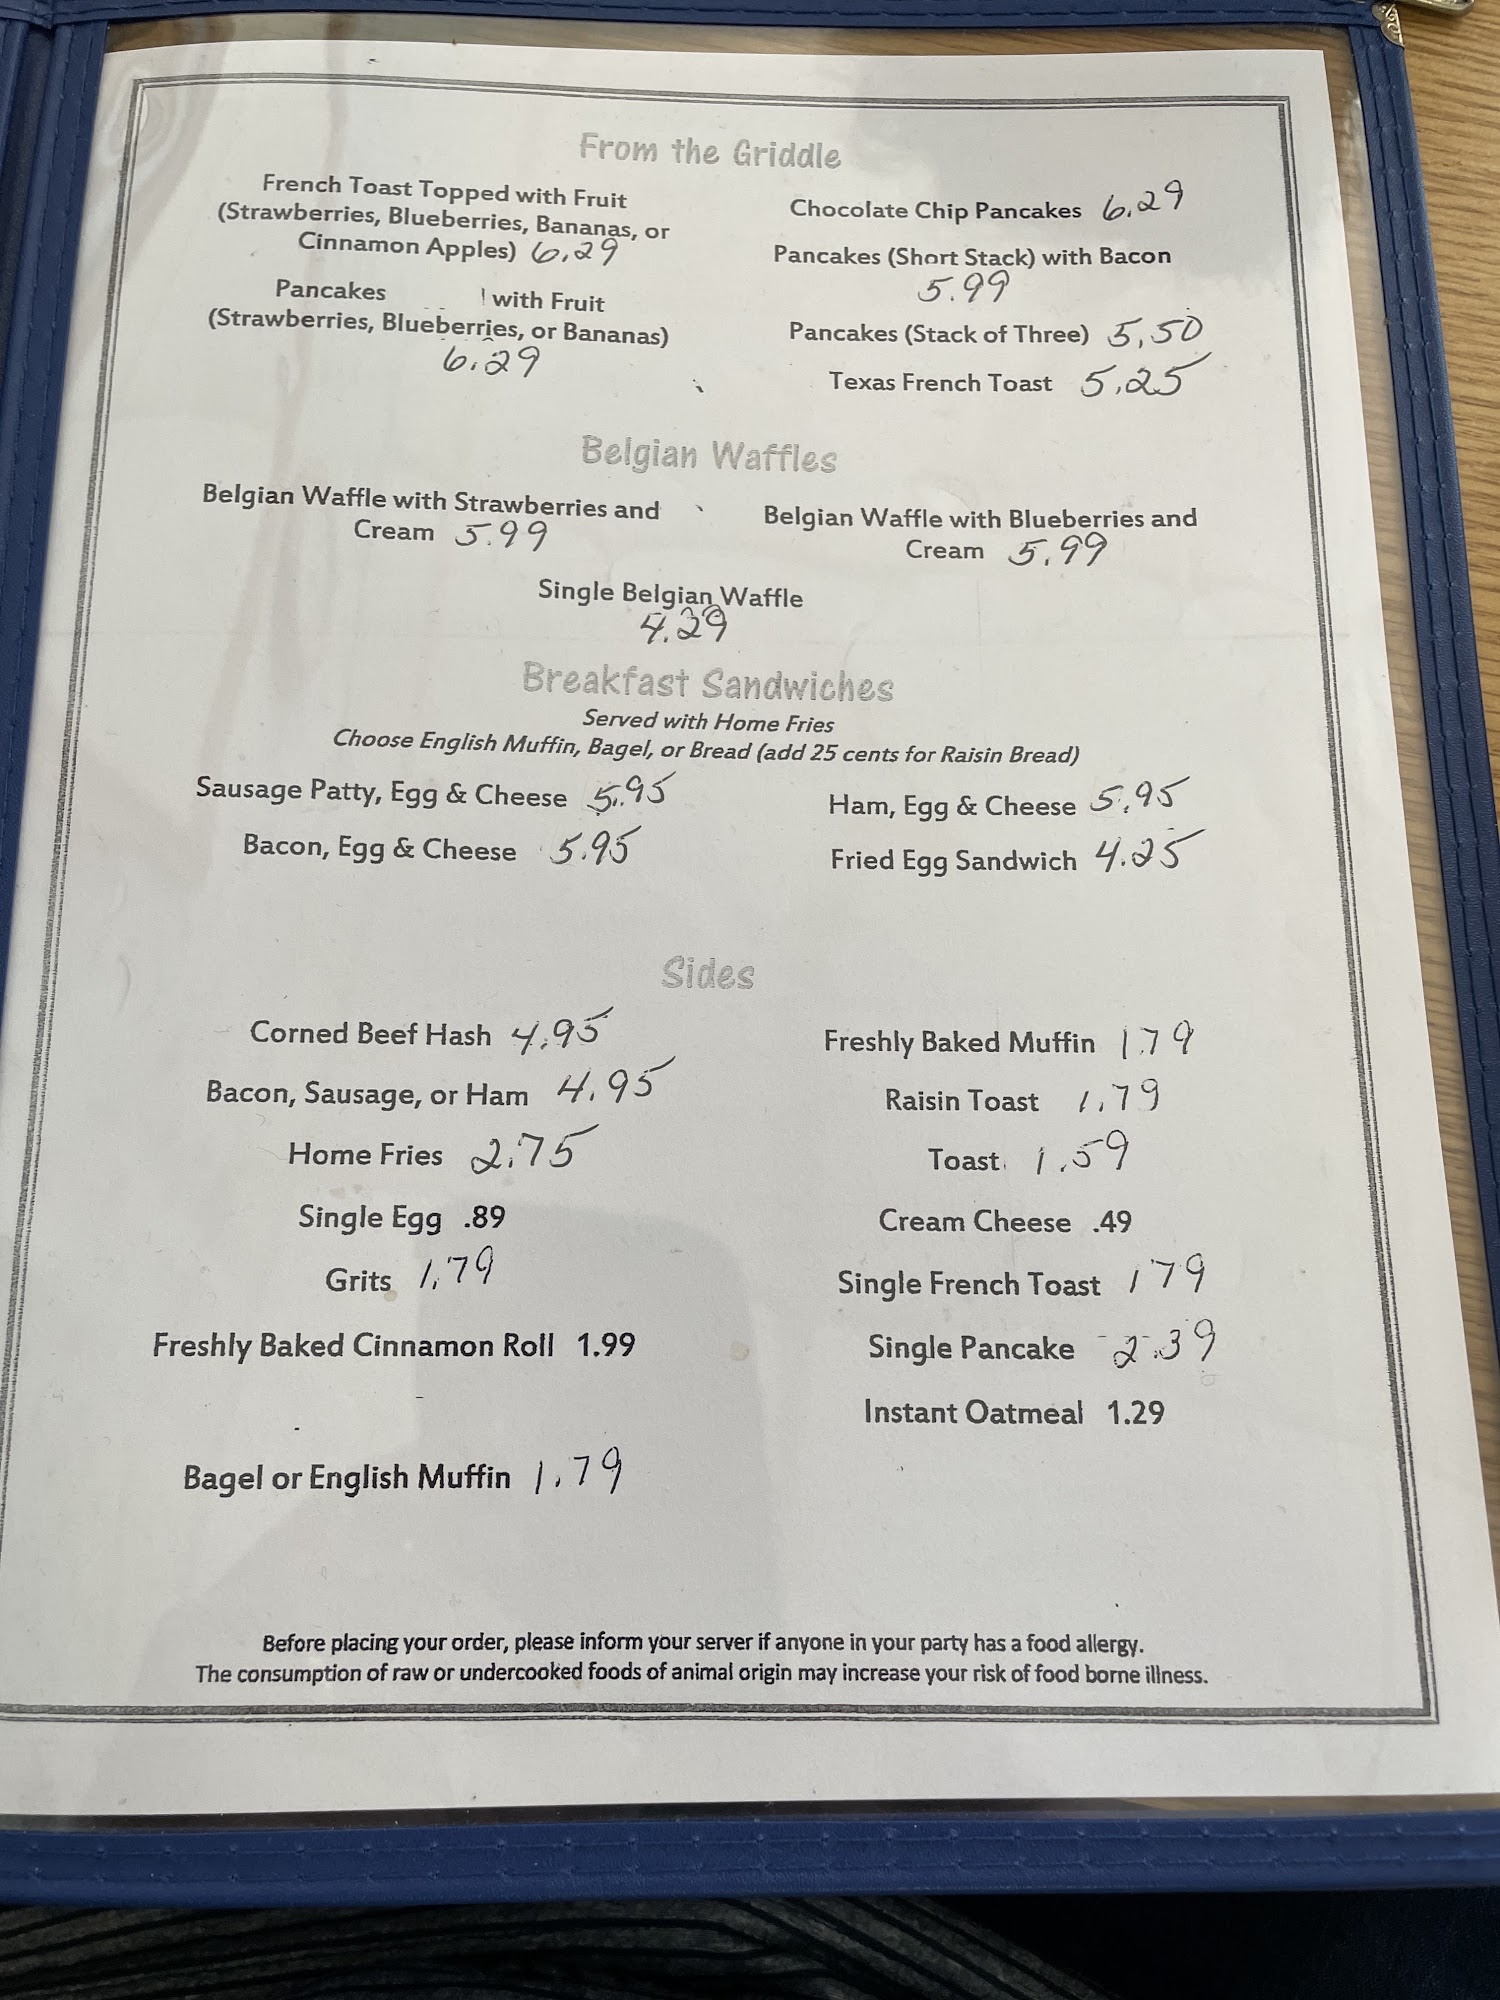 From the Griddle
French Toast Topped with Fruit
(Strawberries, Blueberries, Bananas, or
Cinnamon Apples) 6.29
Pancakes with Fruit
(Strawberries, Blueberries, or Bananas)
6.29
Chocolate Chip Pancakes 6.29
Pancakes (Short Stack) with Bacon
5.99
Pancakes (Stack of Three) 5.50
Texas French Toast 5.25
Belgian Waffles
Belgian Waffle with Strawberries and
Cream 5.99
Belgian Waffle with Blueberries and
Cream 5.99
Single Belgian Waffle
4.29
Breakfast Sandwiches
Served with Home Fries
Choose English Muffin, Bagel, or Bread (add 25 cents for Raisin Bread)
Sausage Patty, Egg & Cheese 5.95
Bacon, Egg & Cheese 5.95
Ham, Egg & Cheese 5.95
Fried Egg Sandwich 4.25
Sides
Corned Beef Hash 4.95
Bacon, Sausage, or Ham 4.95
Home Fries 2.75
Single Egg .89
Grits 1.79
Freshly Baked Cinnamon Roll 1.99
Bagel or English Muffin 1.79
Freshly Baked Muffin 1.79
Raisin Toast 1.79
Toast 1.59
Cream Cheese .49
Single French Toast 1 79
Single Pancake 2.39
Instant Oatmeal 1.29
Before placing your order, please inform your server if anyone in your party has a food allergy.
The consumption of raw or undercooked foods of animal origin may increase your risk of food borne illness.